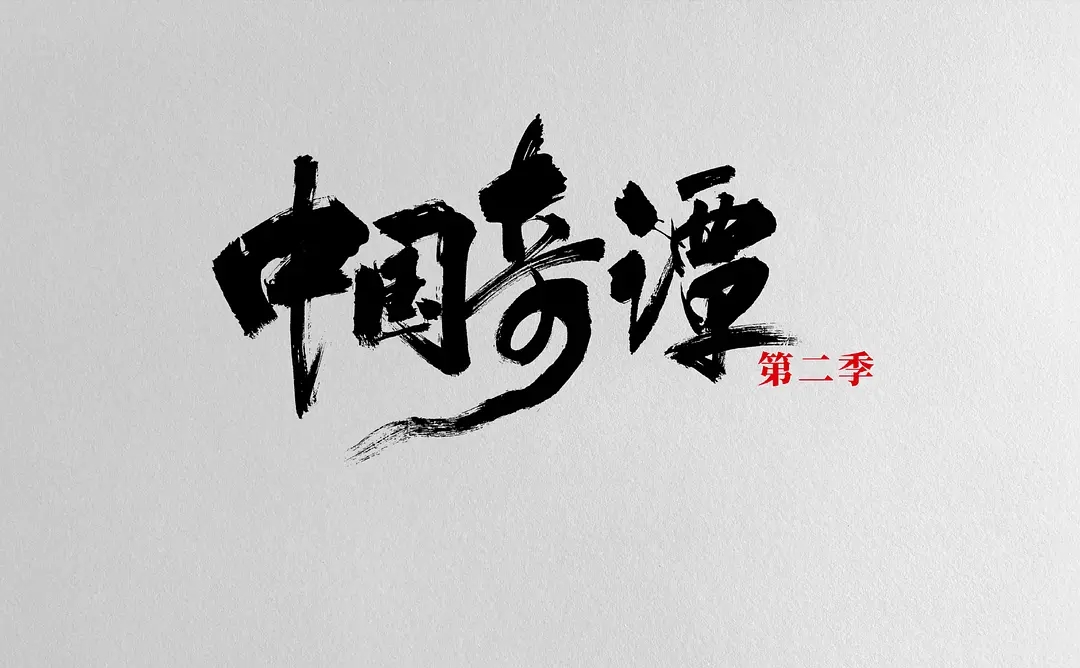 中国奇谭
第二季